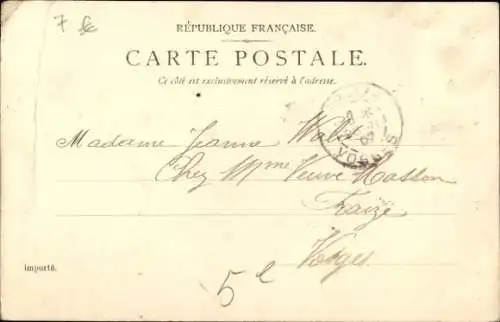 7 €
RÉPUBLIQUE FRANÇAISE.
CARTE POSTALE.
Ce côté est exclusivement réservé à l'adresse.
VOSGES
Madame Jeanne
Chez Mme Veuve Masson
Fraize
Vosges
importé.
5 e